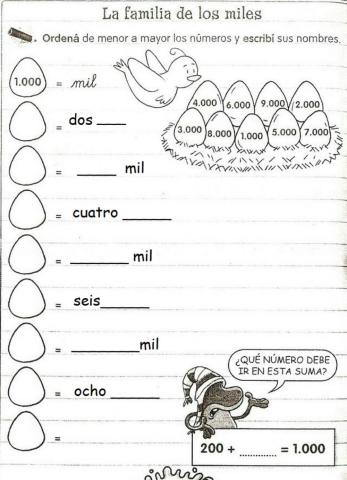 La familia de los miles
Ordená de menor a mayor los números y escribí sus nombres.
1.000 = mil
4.000 6.000 9.000 2.000
3.000 8.000 1.000 5.000 7.000
= dos ____
= _____ mil
= cuatro ______
= _______ mil
= seis______
= ________mil
= ocho ______
=
¿QUÉ NÚMERO DEBE
IR EN ESTA SUMA?
200 + ............ = 1.000